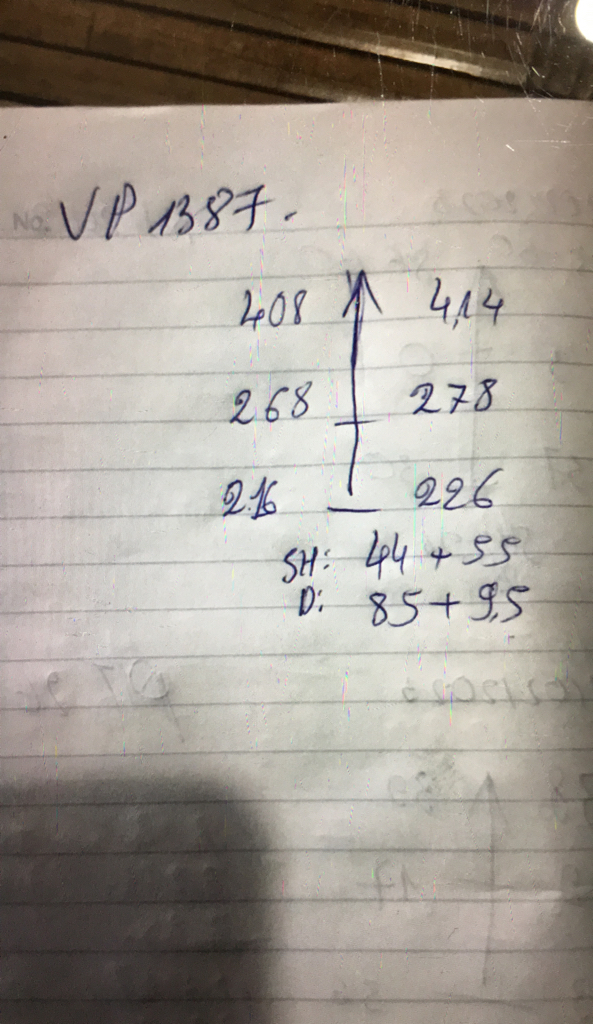 VP 1387.
408 4,14
268 278
2.16 226
SH: 44 + 55
D: 85 + 9,5